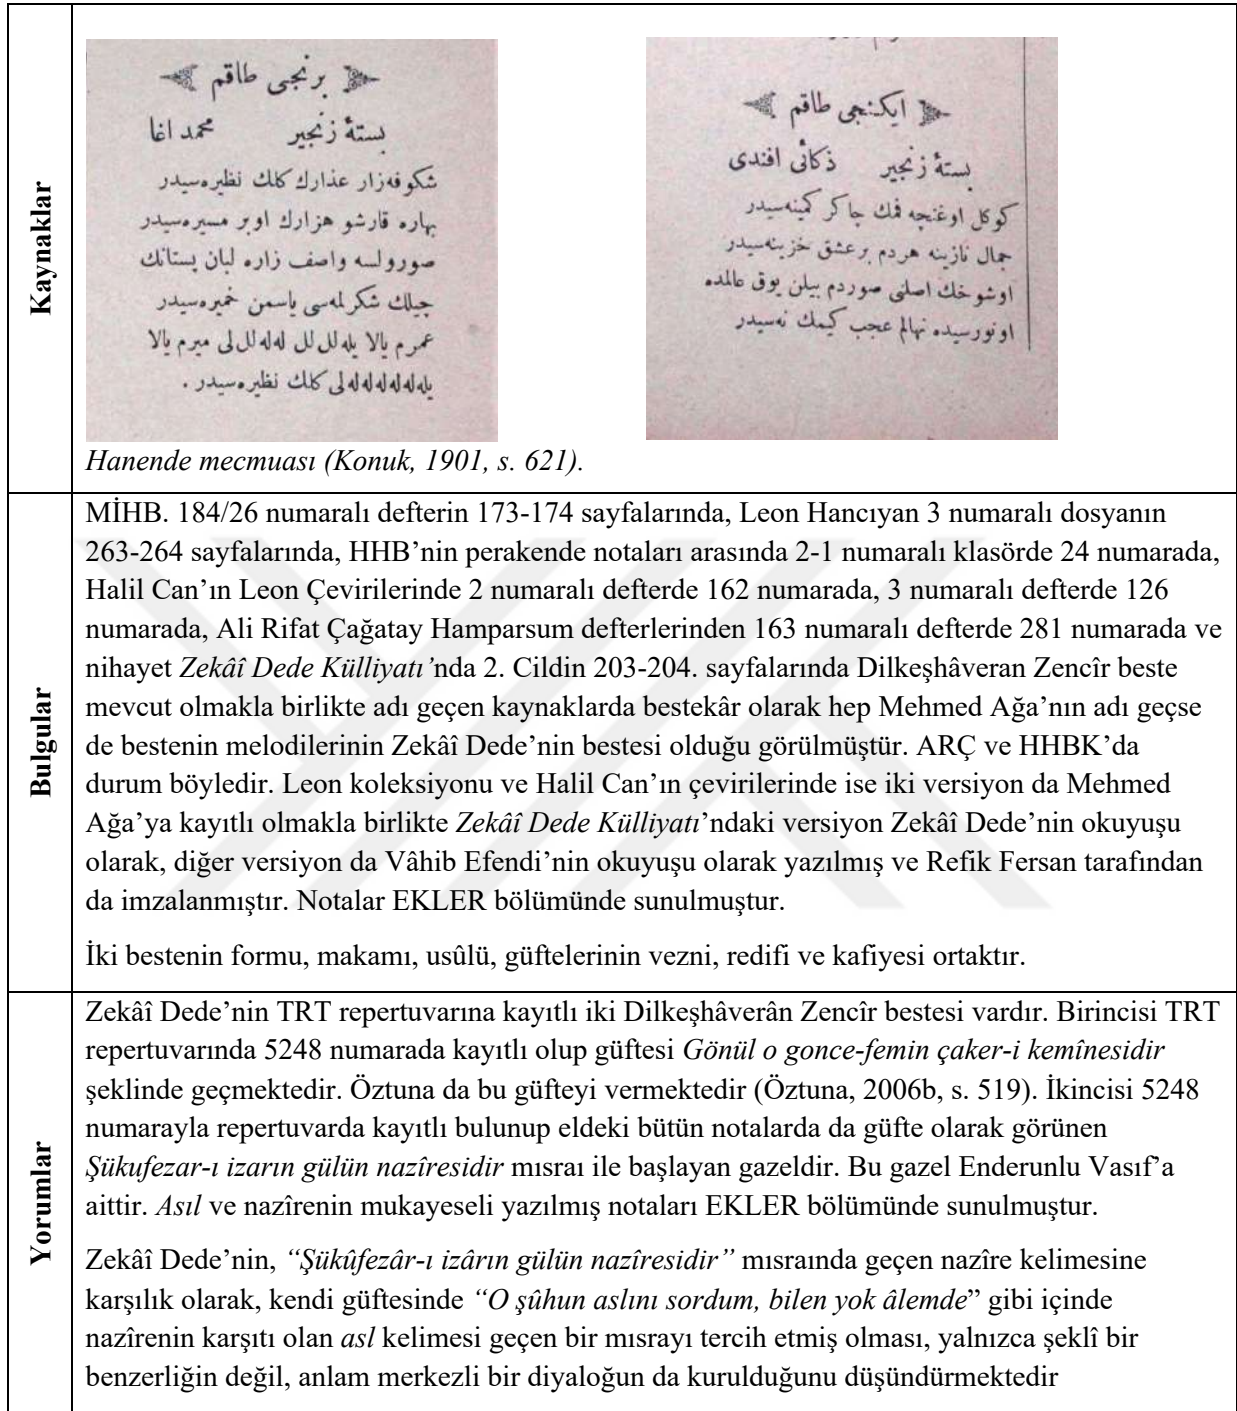 Kaynaklar
برنجی طاقم
بستهٔ زنجیر محمد اغا
شكوفه‌زار عذارك كلك نظیره‌سیدر
بهاره قارشو هزارك اوبر مسیره‌سیدر
صورولسه واصف زاره لبان بستانك
جیلك شكرلمه‌سی یاسمن خمیره‌سیدر
عمرم یالا یله‌لل لل له‌له لل لی میرم یالا
یله‌له‌له‌له‌له‌له‌لی كلك نظیره‌سیدر .
ایكنجی طاقم
بستهٔ زنجیر ذكائی افندی
كوكل اوغنچه فمك چاكر كمینه‌سیدر
جمال نازینه هردم بر عشق خزینه‌سیدر
اوشوخك اصلنی صوردم بیلن یوق عالمده
اونورسیده نهالم عجب كیمك نه‌سیدر
Hanende mecmuası (Konuk, 1901, s. 621).
Bulgular
MİHB. 184/26 numaralı defterin 173-174 sayfalarında, Leon Hancıyan 3 numaralı dosyanın
263-264 sayfalarında, HHB’nin perakende notaları arasında 2-1 numaralı klasörde 24 numarada,
Halil Can’ın Leon Çevirilerinde 2 numaralı defterde 162 numarada, 3 numaralı defterde 126
numarada, Ali Rifat Çağatay Hamparsum defterlerinden 163 numaralı defterde 281 numarada ve
nihayet Zekâî Dede Külliyatı’nda 2. Cildin 203-204. sayfalarında Dilkeşhâveran Zencîr beste
mevcut olmakla birlikte adı geçen kaynaklarda bestekâr olarak hep Mehmed Ağa’nın adı geçse
de bestenin melodilerinin Zekâî Dede’nin bestesi olduğu görülmüştür. ARÇ ve HHBK’da
durum böyledir. Leon koleksiyonu ve Halil Can’ın çevirilerinde ise iki versiyon da Mehmed
Ağa’ya kayıtlı olmakla birlikte Zekâî Dede Külliyatı’ndaki versiyon Zekâî Dede’nin okuyuşu
olarak, diğer versiyon da Vâhib Efendi’nin okuyuşu olarak yazılmış ve Refik Fersan tarafından
da imzalanmıştır. Notalar EKLER bölümünde sunulmuştur.
İki bestenin formu, makamı, usûlü, güftelerinin vezni, redifi ve kafiyesi ortaktır.
Yorumlar
Zekâî Dede’nin TRT repertuvarına kayıtlı iki Dilkeşhâverân Zencîr bestesi vardır. Birincisi TRT
repertuvarında 5248 numarada kayıtlı olup güftesi Gönül o gonce-femin çaker-i kemînesidir
şeklinde geçmektedir. Öztuna da bu güfteyi vermektedir (Öztuna, 2006b, s. 519). İkincisi 5248
numarayla repertuvarda kayıtlı bulunup eldeki bütün notalarda da güfte olarak görünen
Şükufezar-ı izarın gülün nazîresidir mısraı ile başlayan gazeldir. Bu gazel Enderunlu Vasıf’a
aittir. Asıl ve nazîrenin mukayeseli yazılmış notaları EKLER bölümünde sunulmuştur.
Zekâî Dede’nin, “Şükûfezâr-ı izârın gülün nazîresidir” mısraında geçen nazîre kelimesine
karşılık olarak, kendi güftesinde “O şûhun aslını sordum, bilen yok âlemde” gibi içinde
nazîrenin karşıtı olan asl kelimesi geçen bir mısrayı tercih etmiş olması, yalnızca şeklî bir
benzerliğin değil, anlam merkezli bir diyaloğun da kurulduğunu düşündürmektedir